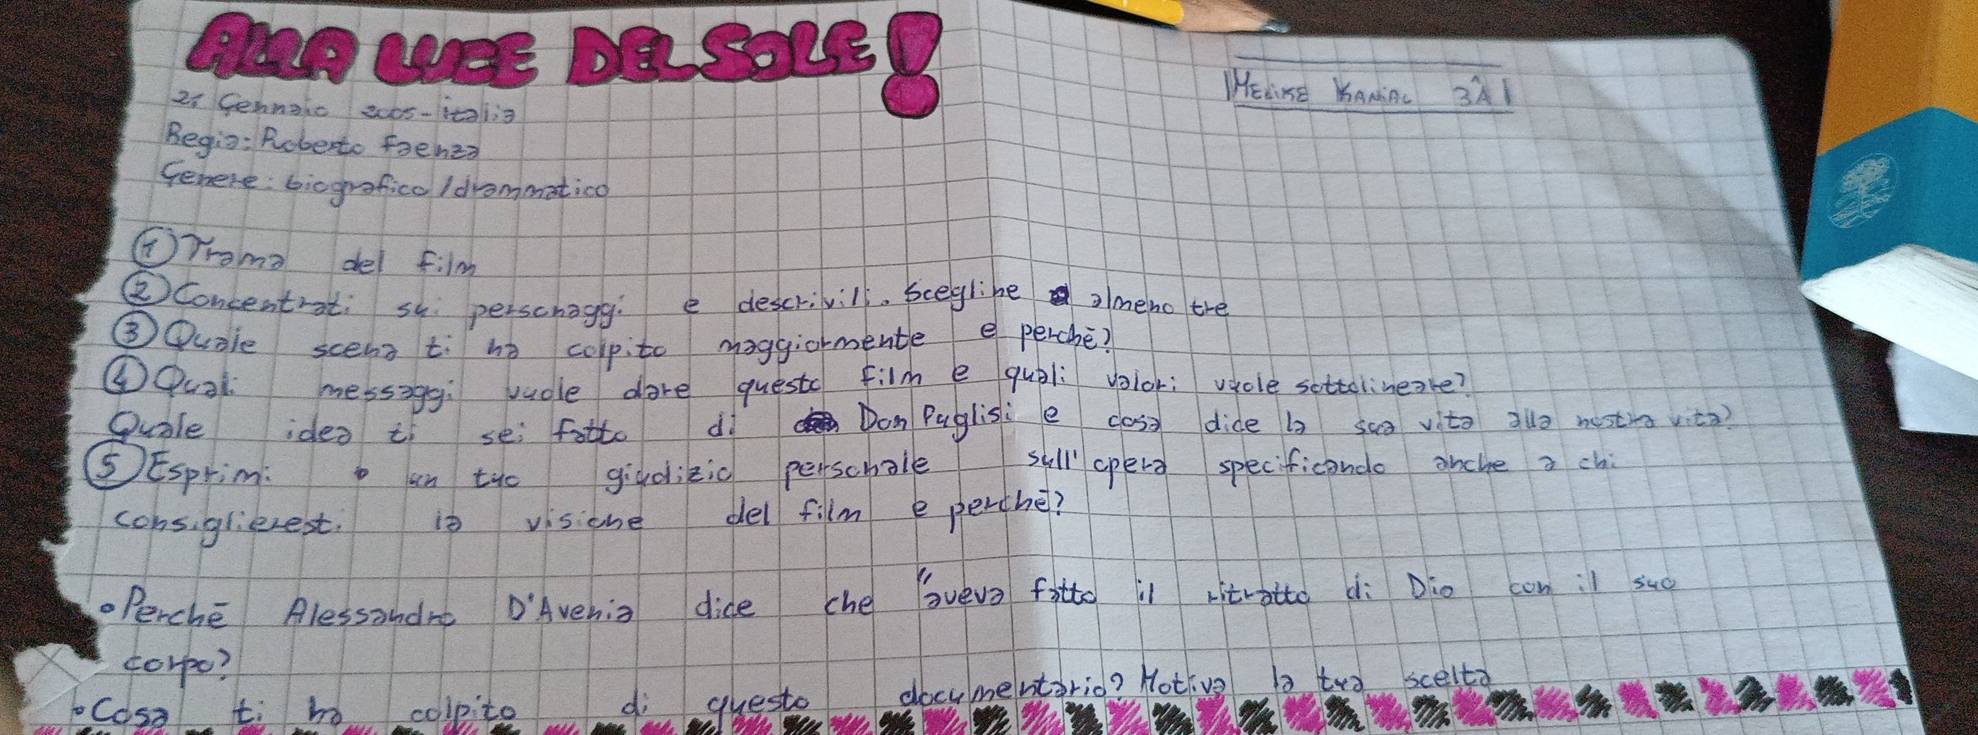 ALLA LUCE DEL SOLE!
21 Gennaio 2005-italia
MELIKE KANIAL 3^A
Regia: Roberto Faenza
Genere: biografico/drammatico
① Trama del film
② Concentrati sui personaggi e descrivili. Scegline almeno tre
③ Quale scena ti ha colpito maggiormente e perchè?
④ Quali messaggi vuole dare questo film e quali valori vuole sottolineare?
Quale idea ti sei fatto di Don Puglisi e cosa dice la sua vita alla nostra vita?
⑤ Esprimi un tuo giudizio personale sull'opera specificando anche a chi
consiglieresti la visione del film e perchè?
•Perchè Alessandro D'Avenia dice che "aveva fatto il ritratto di Dio con il suo
corpo?
•Cosa ti ha colpito di questo documentario? Motiva la tua scelta